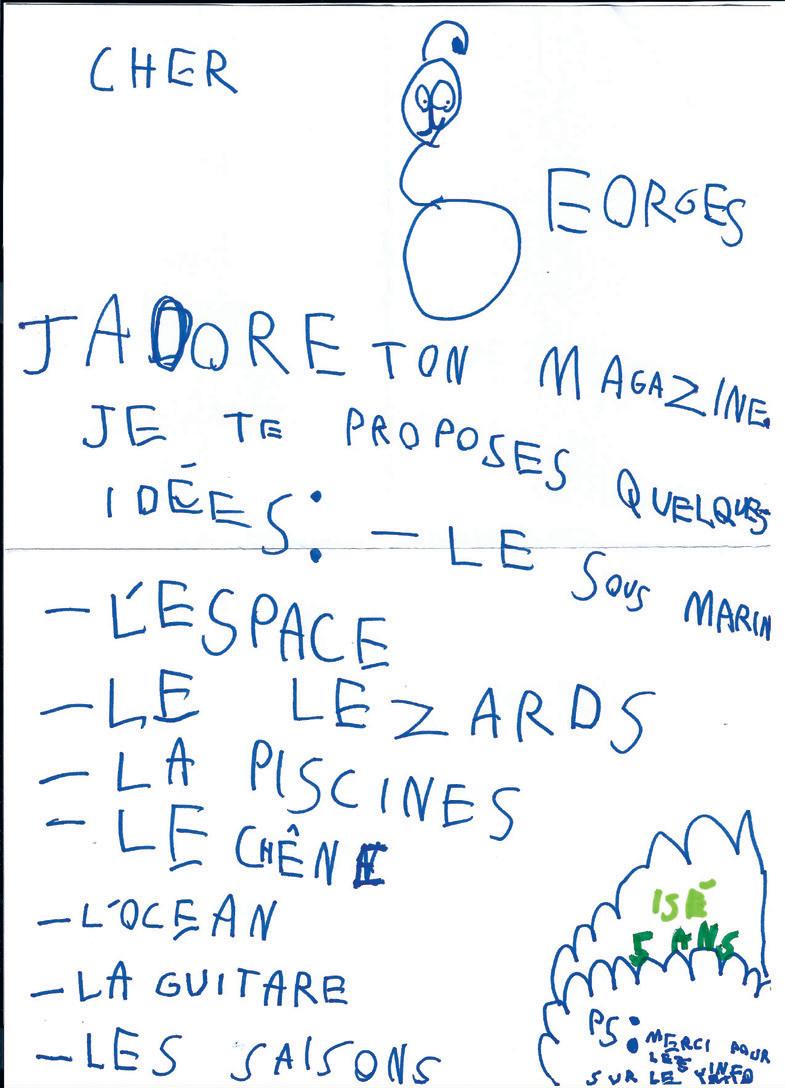 CHER
GEORGES
JADORE TON MAGAZINE.
JE TE PROPOSES QUELQUES
IDÉES: - LE SOUS MARIN
- L'ESPACE
- LE LEZARDS
- LA PISCINES
- LE CHÊNE
- L'OCEAN
- LA GUITARE
- LES SAISONS
ISÉ
5 ANS
PS: MERCI POUR
LES INFO
SUR LE